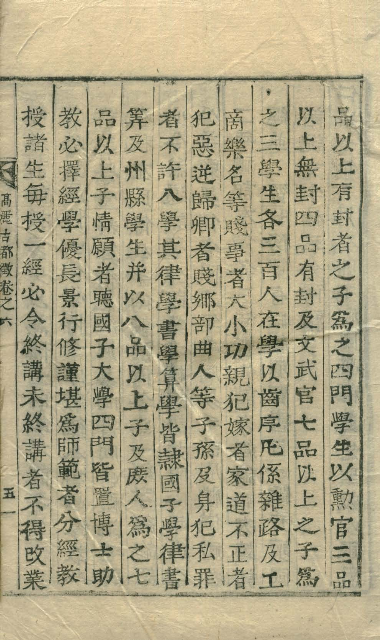 品以上有封者之子爲之四門學生以勳官三品
以上無封四品有封及文武官七品以上之子爲
之三學生各三百人在學以齒序凡係雜路及工
商樂名等賤事者大小功親犯嫁者家道不正者
犯惡逆歸鄉者賤鄉部曲人等子孫及身犯私罪
者不許入學其律學書學算學皆隷國子學律書
筭及州縣學生并以八品以上子及庶人爲之七
品以上子情願者聽國子大學四門皆置博士助
教必擇經學優長景行修謹堪爲師範者分經教
授諸生每授一經必令終講未終講者不得改業
高麗古都徵卷之六
五一